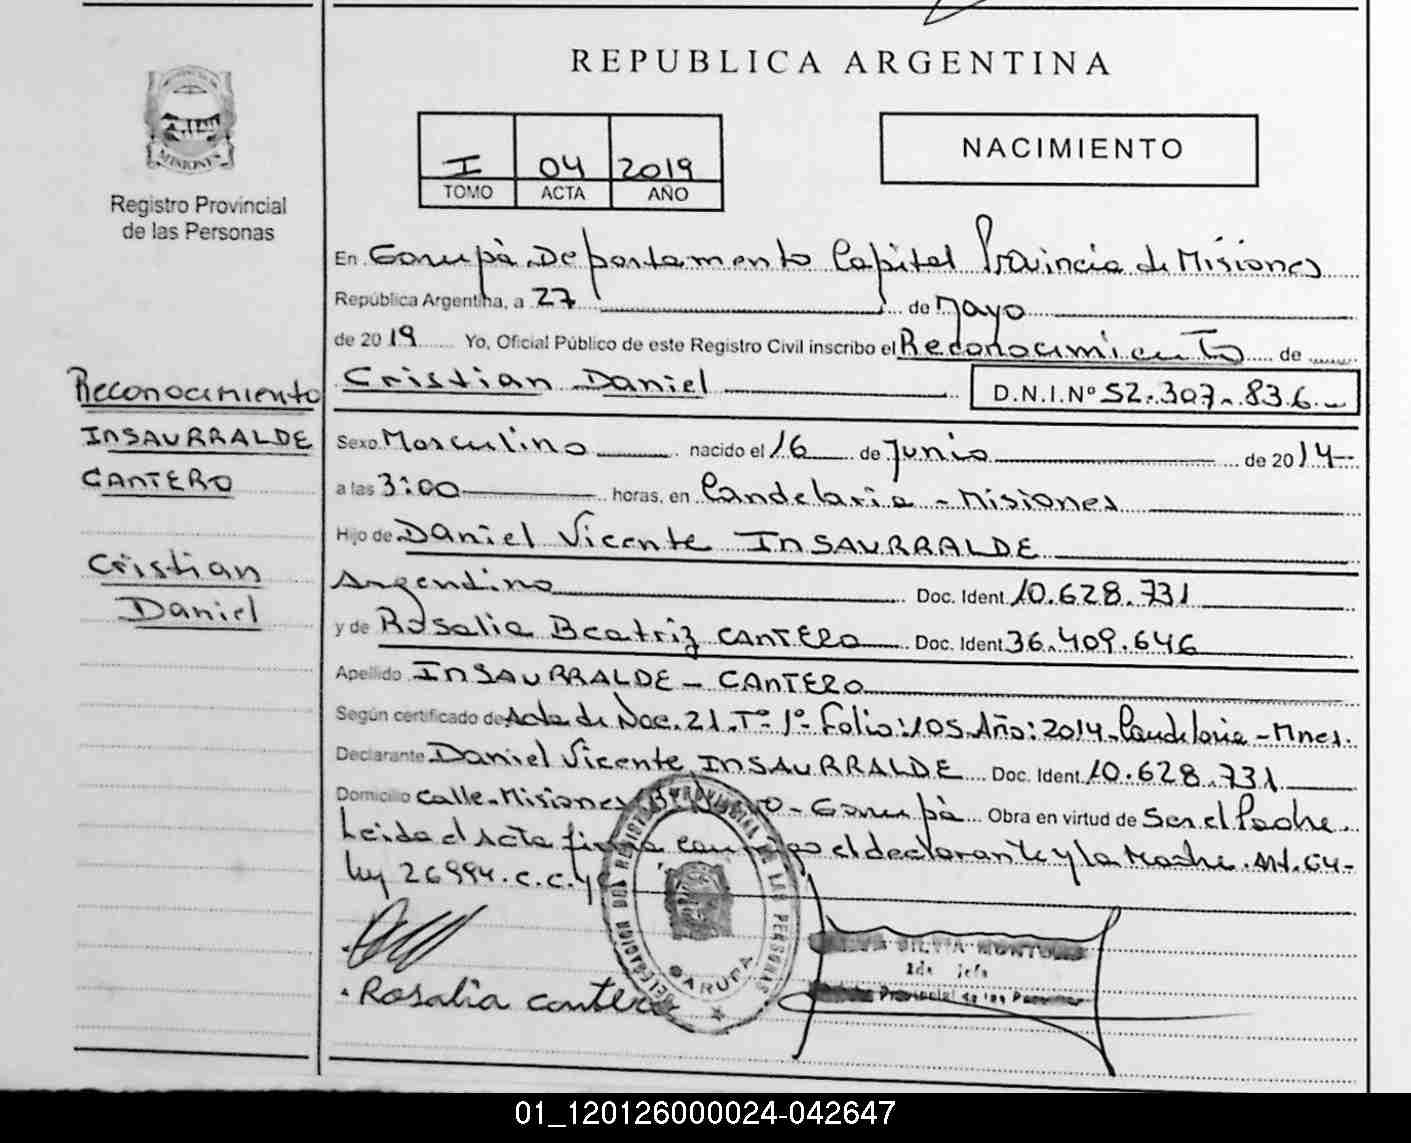 REPUBLICA ARGENTINA
MISIONES
Registro Provincial
de las Personas
I 04 2019
TOMO ACTA AÑO
NACIMIENTO
En Garupà Departamento Capital Provincia de Misiones
República Argentina, a 27 de Mayo
de 2019 Yo, Oficial Público de este Registro Civil inscribo el Reconocimiento de
Cristian Daniel D.N.I.Nº 52.307.836
Reconocimiento
INSAURRALDE
CANTERO
Cristian
Daniel
Sexo Masculino nacido el 16 de Junio de 2014
a las 3:00 horas, en Candelaria - Misiones
Hijo de Daniel Vicente INSAURRALDE
Argentino Doc. Ident. 10.628.731
y de Rosalia Beatriz CANTERO Doc. Ident. 36.409.646
Apellido INSAURRALDE - CANTERO
Según certificado de Acta de Nac. 21. Tº 1º Folio: 105. Año: 2014. Candelaria - Mnes.
Declarante Daniel Vicente INSAURRALDE Doc. Ident. 10.628.731
Domicilio Calle Misiones - Garupà Obra en virtud de Ser el Padre
Leida el Acta firma el declarante y la Madre. Art. 64-
ley 26994. c.c.y
Rosalia cantero
DELEGACION DEL REGISTRO PROVINCIAL DE LAS PERSONAS
GARUPA
SILVIA
2da Jefa
Provincial de las Personas
01_120126000024-042647